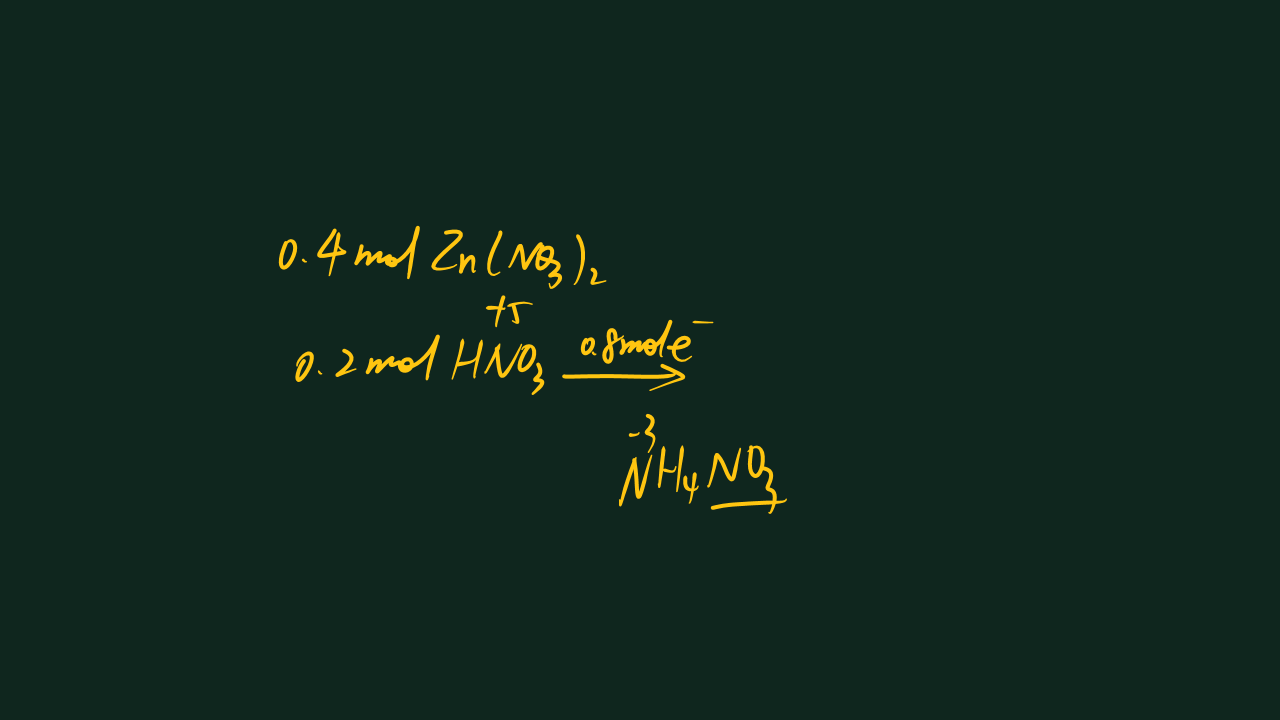 0.4mol Zn(NO₃)₂
+5
0.2mol HNO₃ 0.8mol e⁻ →
-3
NH₄NO₃